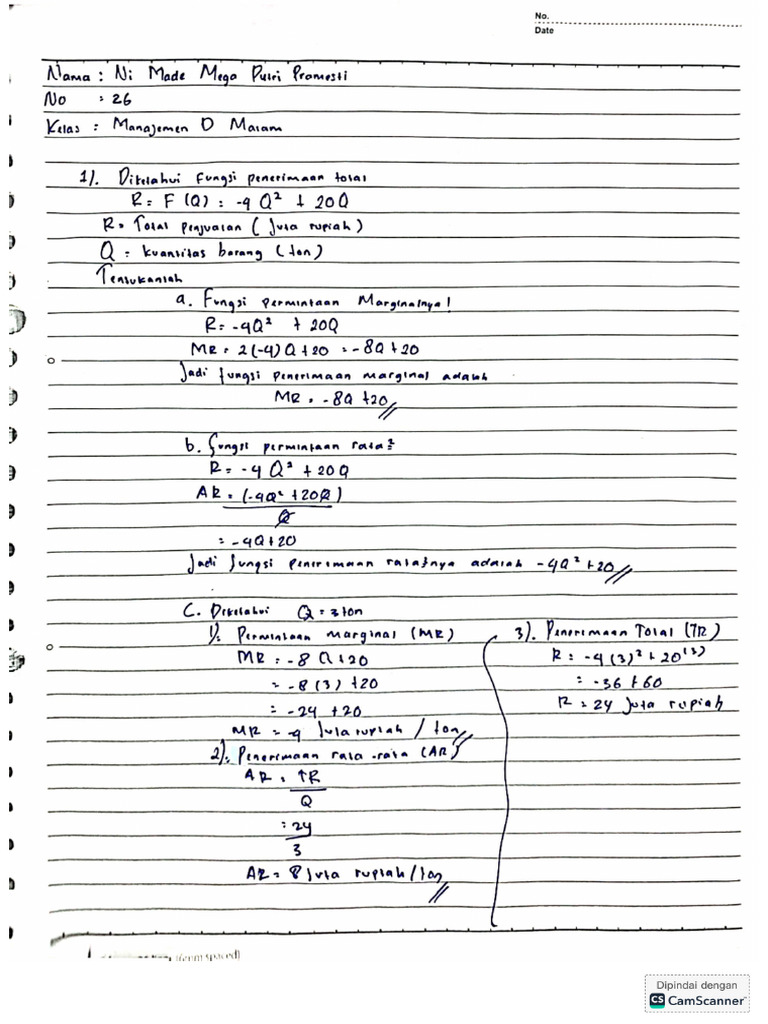 No.
Date
Nama : Ni Made Mega Putri Pramesti
No : 26
Kelas : Manajemen D Malam
1). Diketahui fungsi penerimaan total
R = F (Q) = -4 Q² + 20Q
R = Total penjualan ( Juta rupiah )
Q = kuantitas barang ( ton )
Tentukanlah
a. Fungsi permintaan Marginalnya!
R = -4Q² + 20Q
MR = 2(-4)Q + 20 = -8Q + 20
Jadi fungsi penerimaan marginal adalah
MR = -8Q +20 //
b. fungsi permintaan rata²
R = -4 Q² + 20Q
AR = (-4Q² + 20Q)
Q
= -4Q+20
Jadi fungsi penerimaan rata²nya adalah -4Q² + 20 //
C. Diketahui Q = 3 ton
1). Permintaan marginal (MR)
MR = -8 Q + 20
= -8 (3) + 20
= -24 + 20
MR = -4 Juta rupiah / ton //
2). Penerimaan rata-rata (AR)
AR = TR
Q
= 24
3
AR = 8 Juta rupiah / ton //
3). Penerimaan Total (TR)
R = -4 (3)² + 20 (3)
= -36 + 60
R = 24 Juta rupiah
Dipindai dengan
CS CamScanner